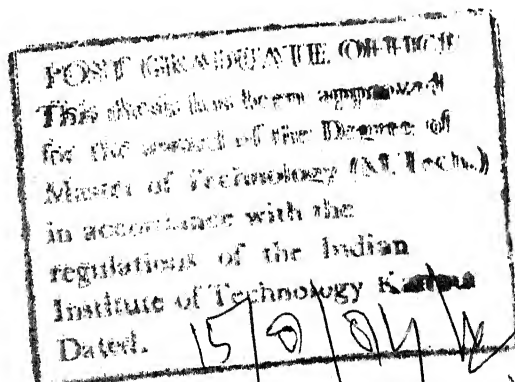 POST GRADUATE OFFICE
This thesis has been approved
for the award of the Degree of
Master of Technology (M.Tech.)
in accordance with the
regulations of the Indian
Institute of Technology Kanpur
Dated.